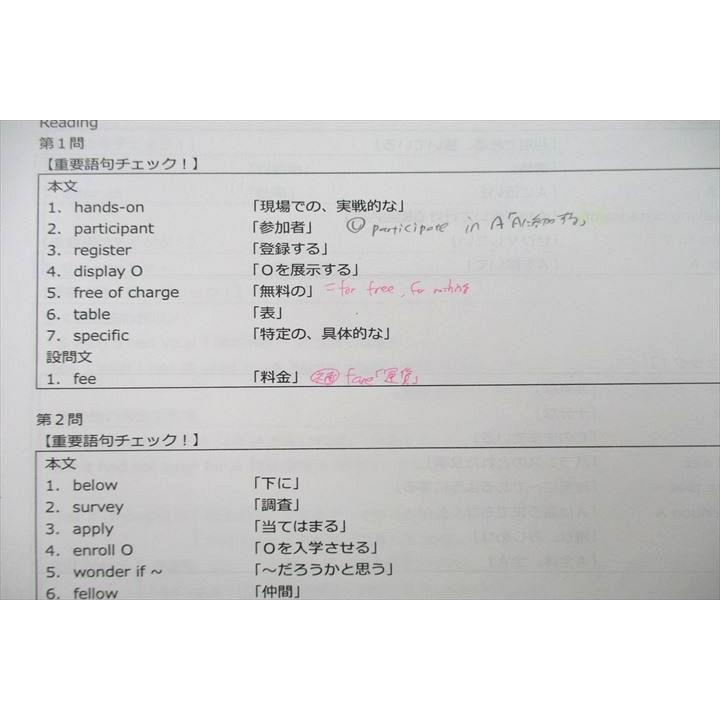 Reading
第1問
【重要語句チェック!】
本文
1. hands-on 「現場での、実戦的な」
2. participant 「参加者」 Ⓥ participate in A「Aに参加する」
3. register 「登録する」
4. display O 「Oを展示する」
5. free of charge 「無料の」 = for free, for nothing
6. table 「表」
7. specific 「特定の、具体的な」
設問文
1. fee 「料金」 fare「運賃」
第2問
【重要語句チェック!】
本文
1. below 「下に」
2. survey 「調査」
3. apply 「当てはまる」
4. enroll O 「Oを入学させる」
5. wonder if ~ 「~だろうかと思う」
6. fellow 「仲間」